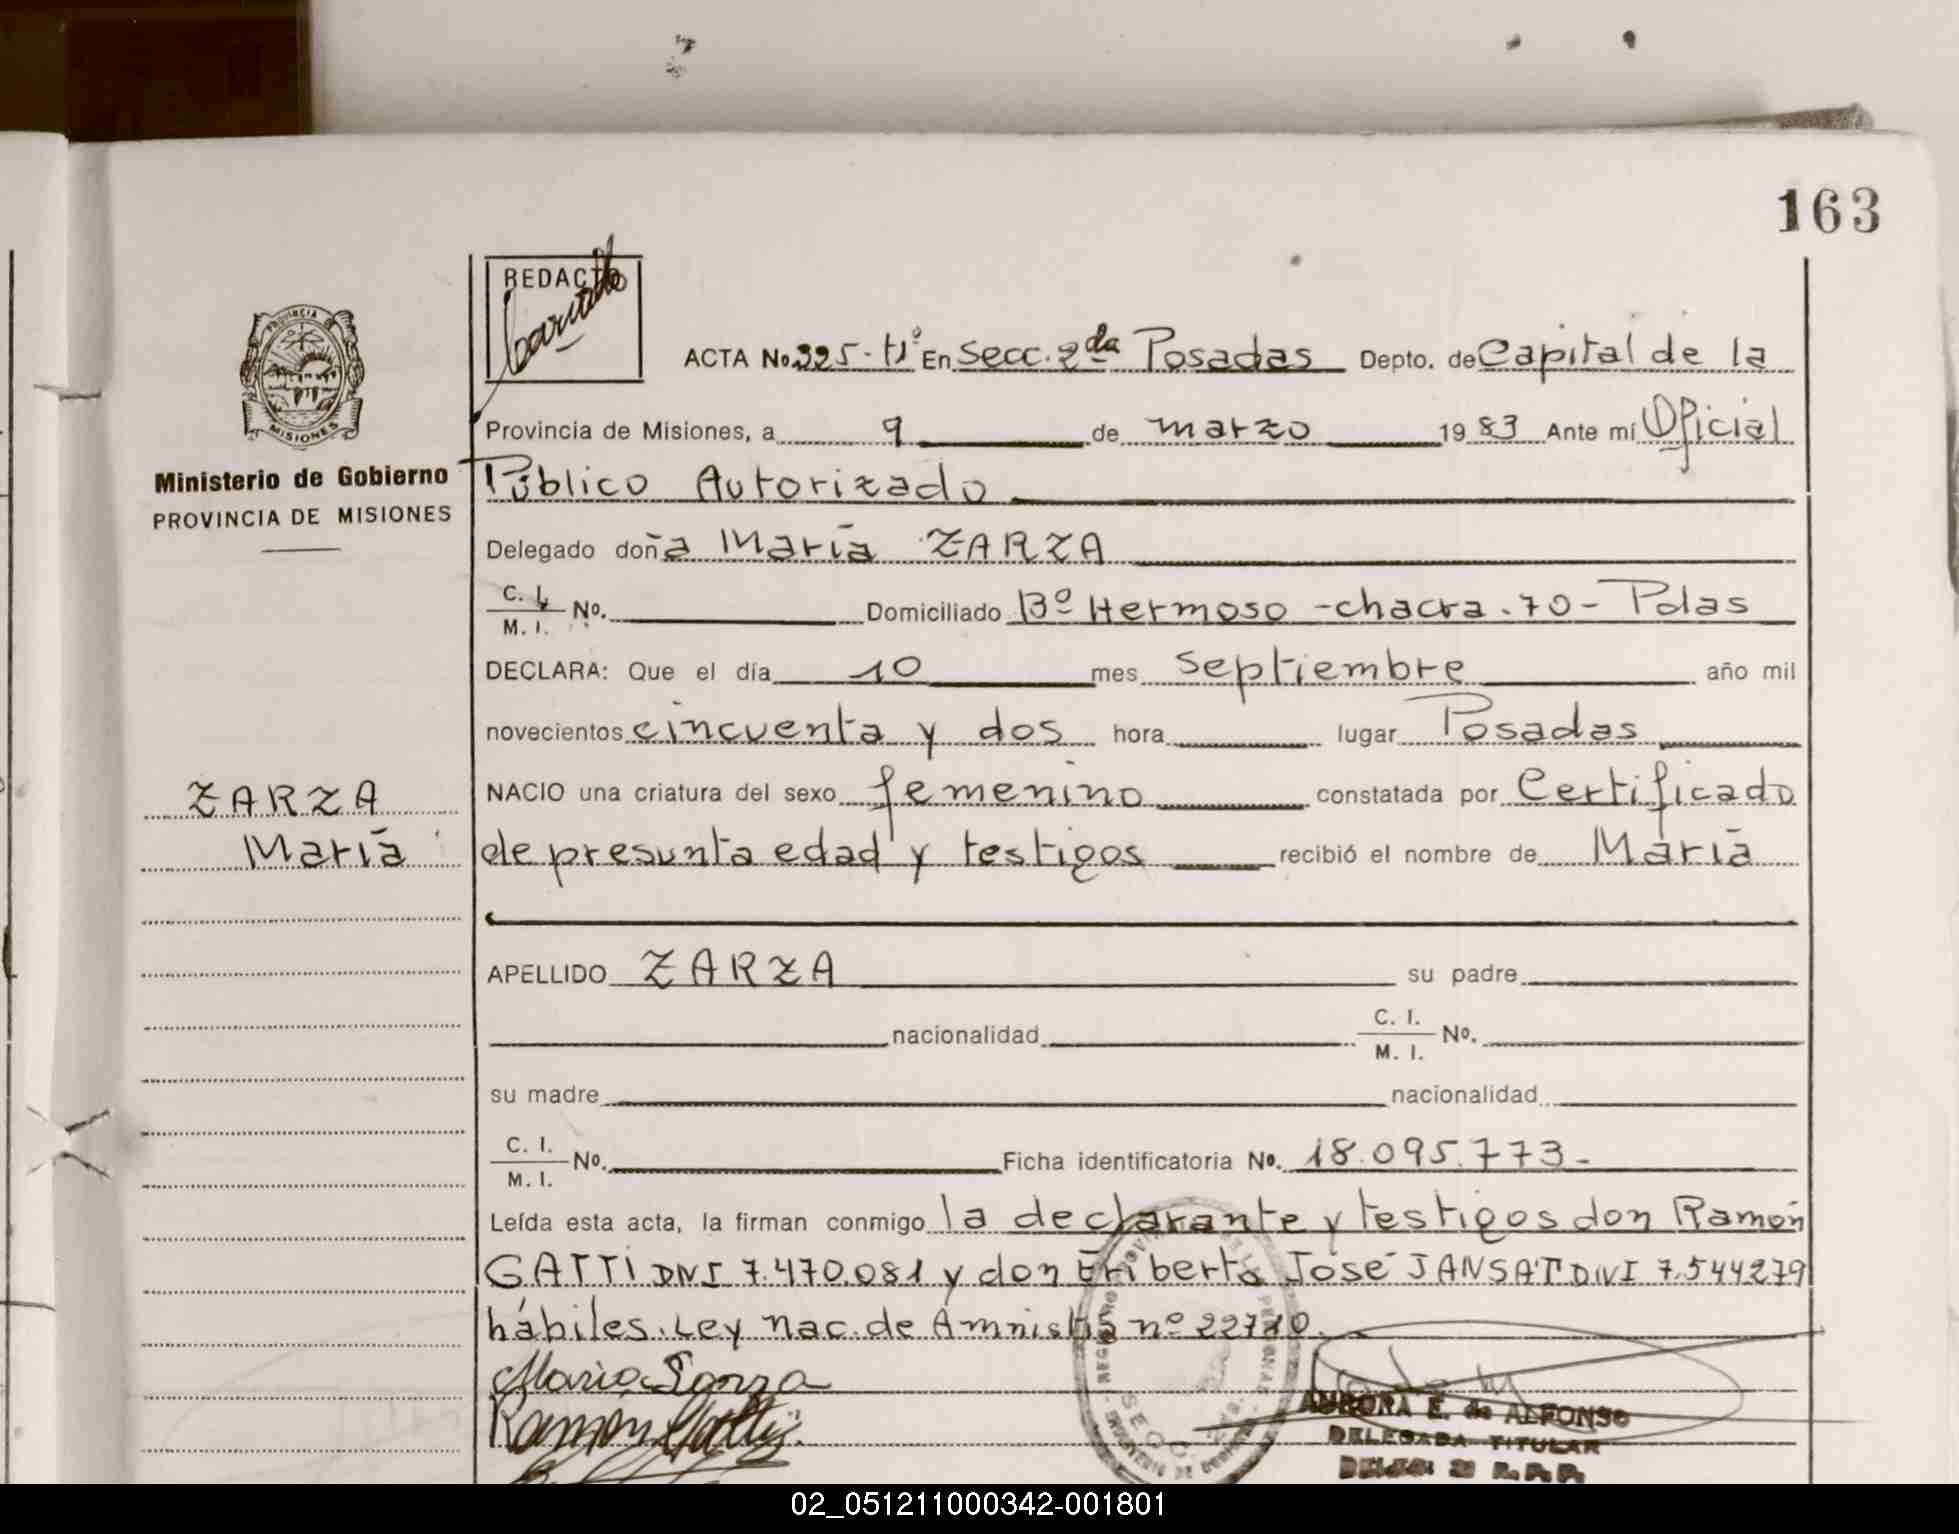 163
REDACTO
ACTA No. 325-tº En Secc. 2da Posadas Depto. de Capital de la
PROVINCIA DE
MISIONES
Provincia de Misiones, a 9 de marzo 1983 Ante mí Oficial
Ministerio de Gobierno
Público Autorizado
PROVINCIA DE MISIONES
Delegado doña María ZARZA
C. I.
M. I. No. Domiciliado Bº Hermoso - chacra. 70 - Pdas
DECLARA: Que el día 10 mes septiembre año mil
novecientos cincuenta y dos hora lugar Posadas
ZARZA
NACIO una criatura del sexo femenino constatada por Certificado
María
de presunta edad y testigos recibió el nombre de María
APELLIDO ZARZA su padre
nacionalidad C. I.
M. I. No.
su madre nacionalidad
C. I.
M. I. No. Ficha identificatoria No. 18.095.773-
Leída esta acta, la firman conmigo la declarante y testigos don Ramón
GATTI DNI 7.470.081 y don Eriberto José JANSAT DNI 7.544279
hábiles. Ley nac. de Amnistía nº 22710.
María Sarza
Ramon Gatti
AURORA E. de ALFONSO
DELEGADA TITULAR
02_051211000342-001801